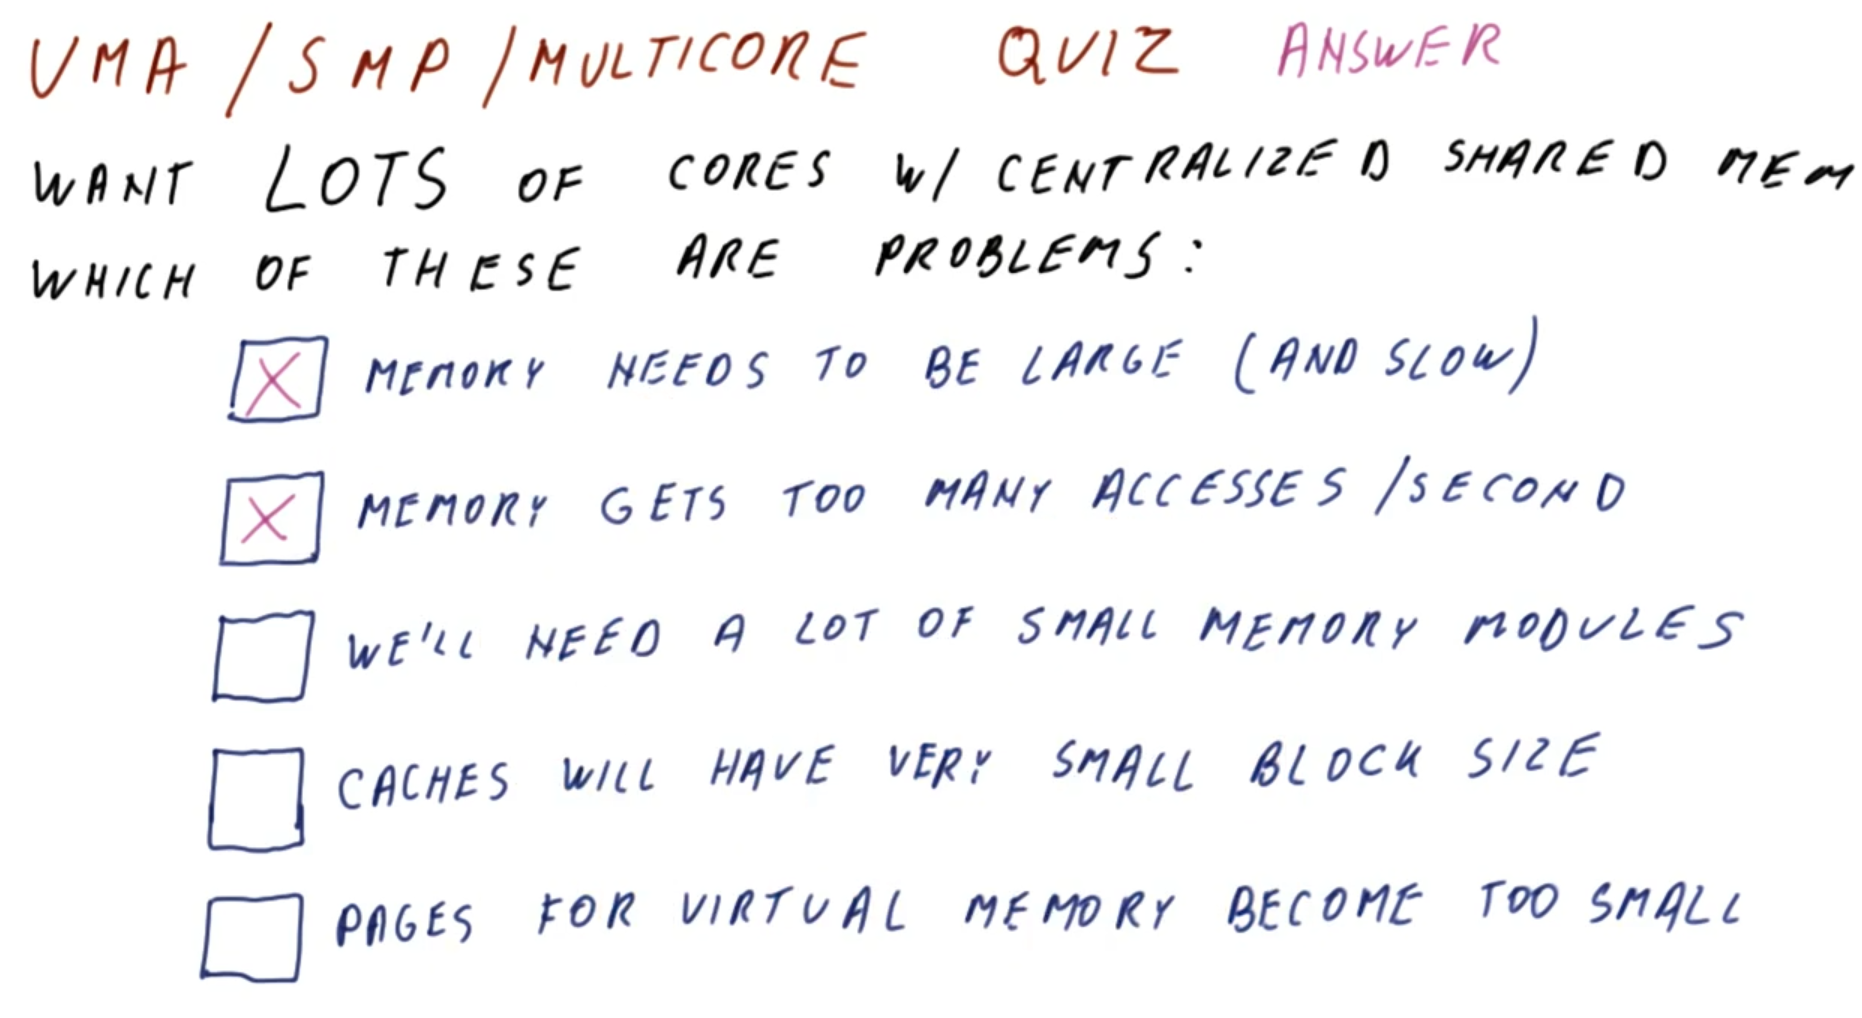 UMA/SMP/MULTICORE QUIZ ANSWER
WANT LOTS OF CORES W/ CENTRALIZED SHARED MEM
WHICH OF THESE ARE PROBLEMS:
X MEMORY NEEDS TO BE LARGE (AND SLOW)
X MEMORY GETS TOO MANY ACCESSES/SECOND
WE'LL NEED A LOT OF SMALL MEMORY MODULES
CACHES WILL HAVE VERY SMALL BLOCK SIZE
PAGES FOR VIRTUAL MEMORY BECOME TOO SMALL